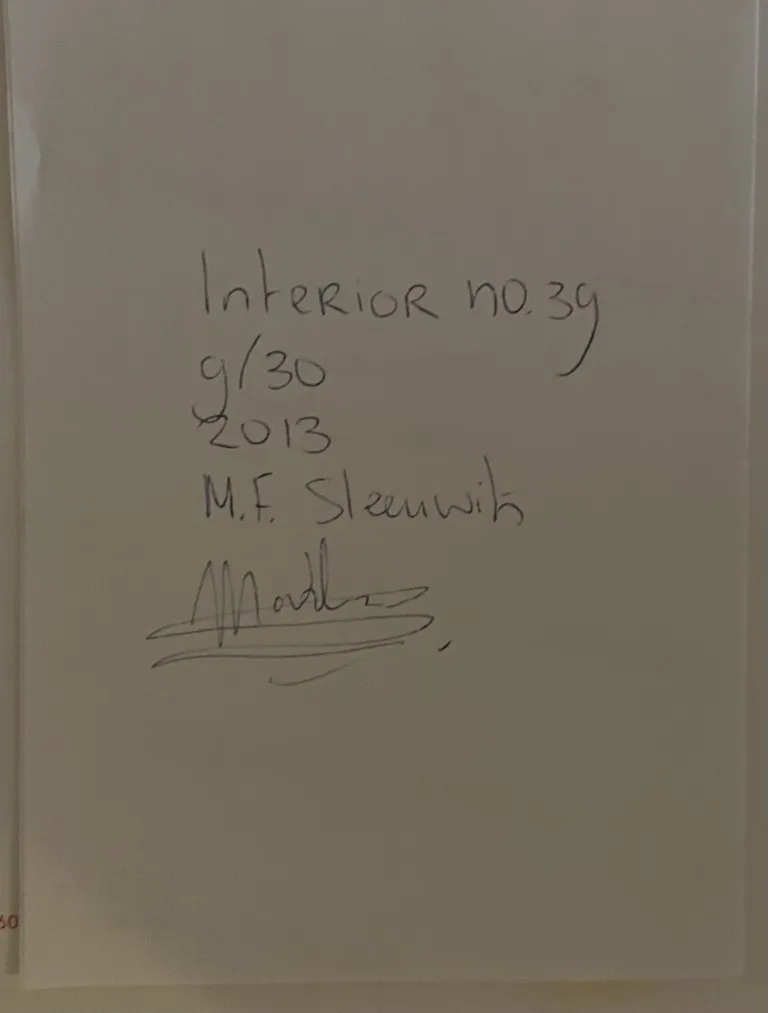 Interior no. 39
9/30
2013
M.F. Sleeuwits
30